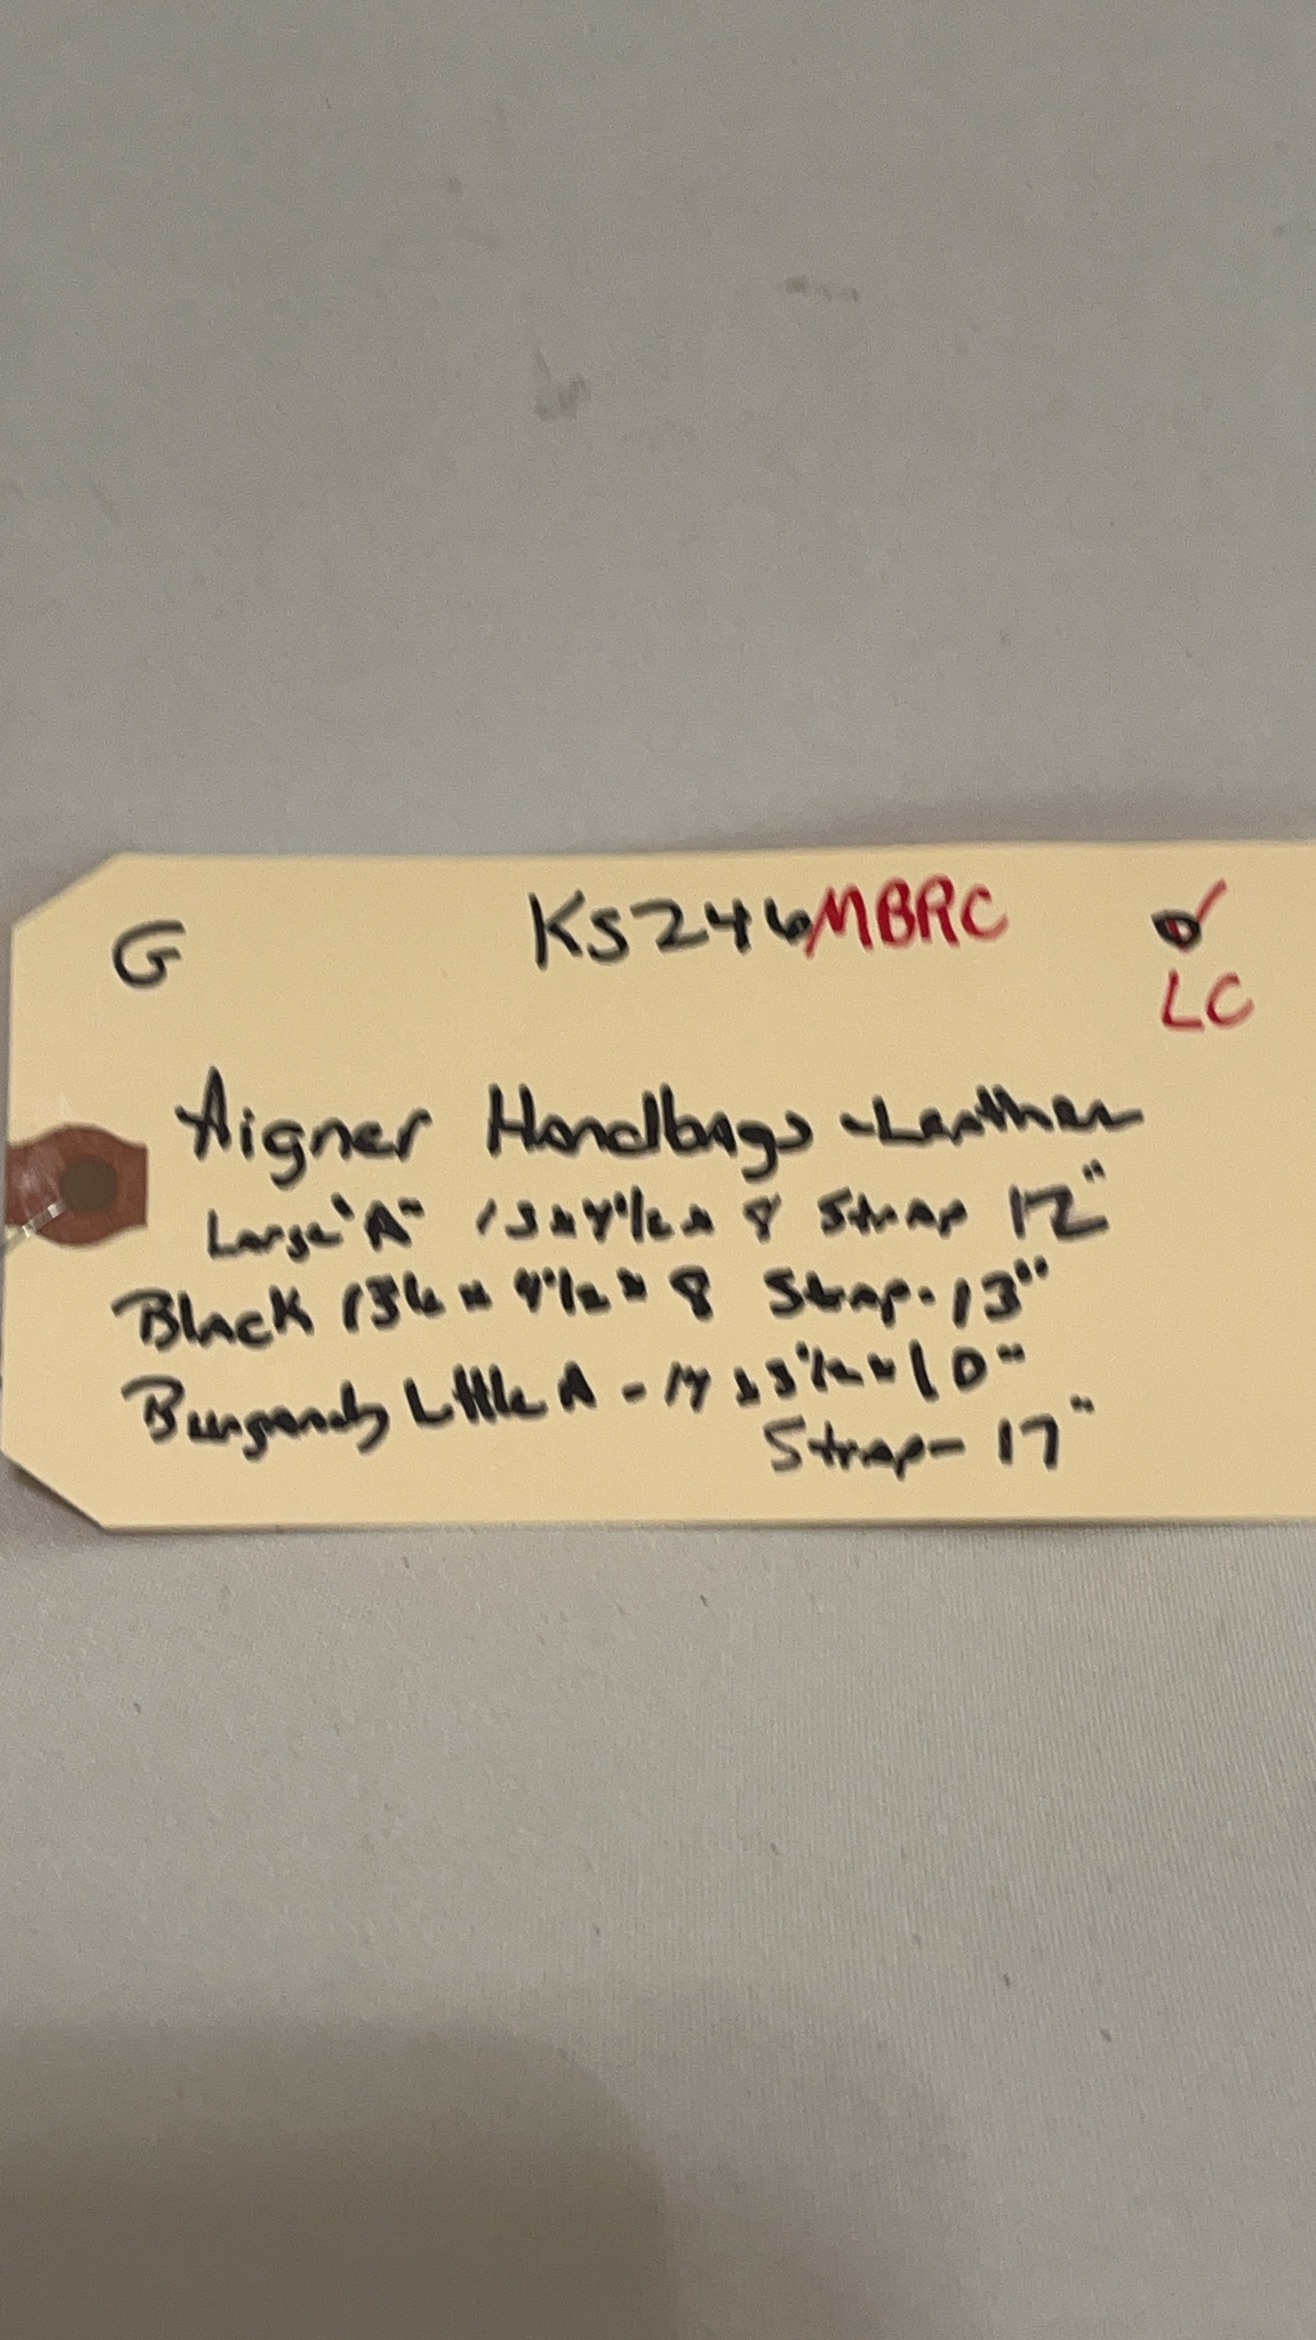 G KS246MBRC
LC
Aigner Handbags - Leather
Large "A" 13 x 4 1/2 x 8 Strap 12"
Black x 4 1/2 x 8 Strap - 13"
Burgandy Little A - 14 x 3 1/2 x 10"
Strap - 17"